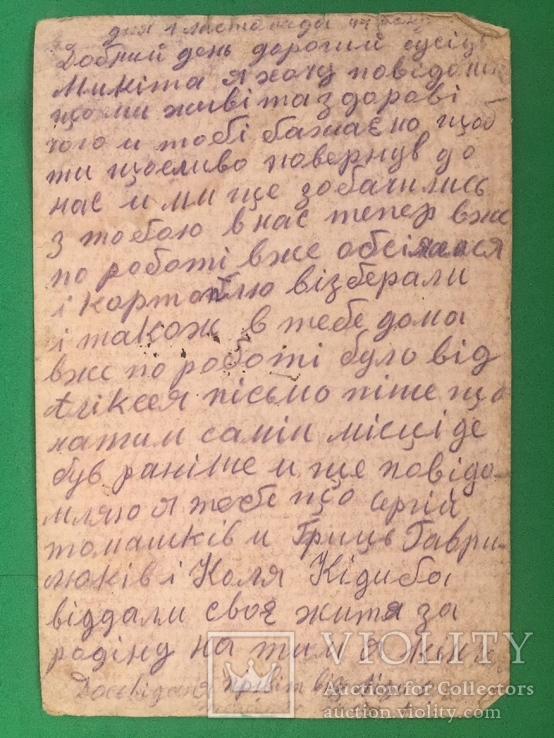 дня 1 листопада 44 року
Добрий день дорогий сусід
Микіта я хочу повідоми
що ми живі та здорові
чого и тобі бажаємо щоб
ти щосливо повернув до
нас и ми ще зобачились
з тобою в нас тепер вже
по роботі вже обсіялися
і картоплю візберали
і также в тебе дома
вже по роботі було від
Аліксея пісьмо піше що
на тим самім місці де
був раніше и ще повідо-
мляю я тобе що Сргій
томашків и Гриць Гаври-
люків і Коля Кідиба
віддали своє житя за
родіну на тим я кінч
Досвіданя привіт від
VIOLITY
Auction for Collectors
auction.violity.com